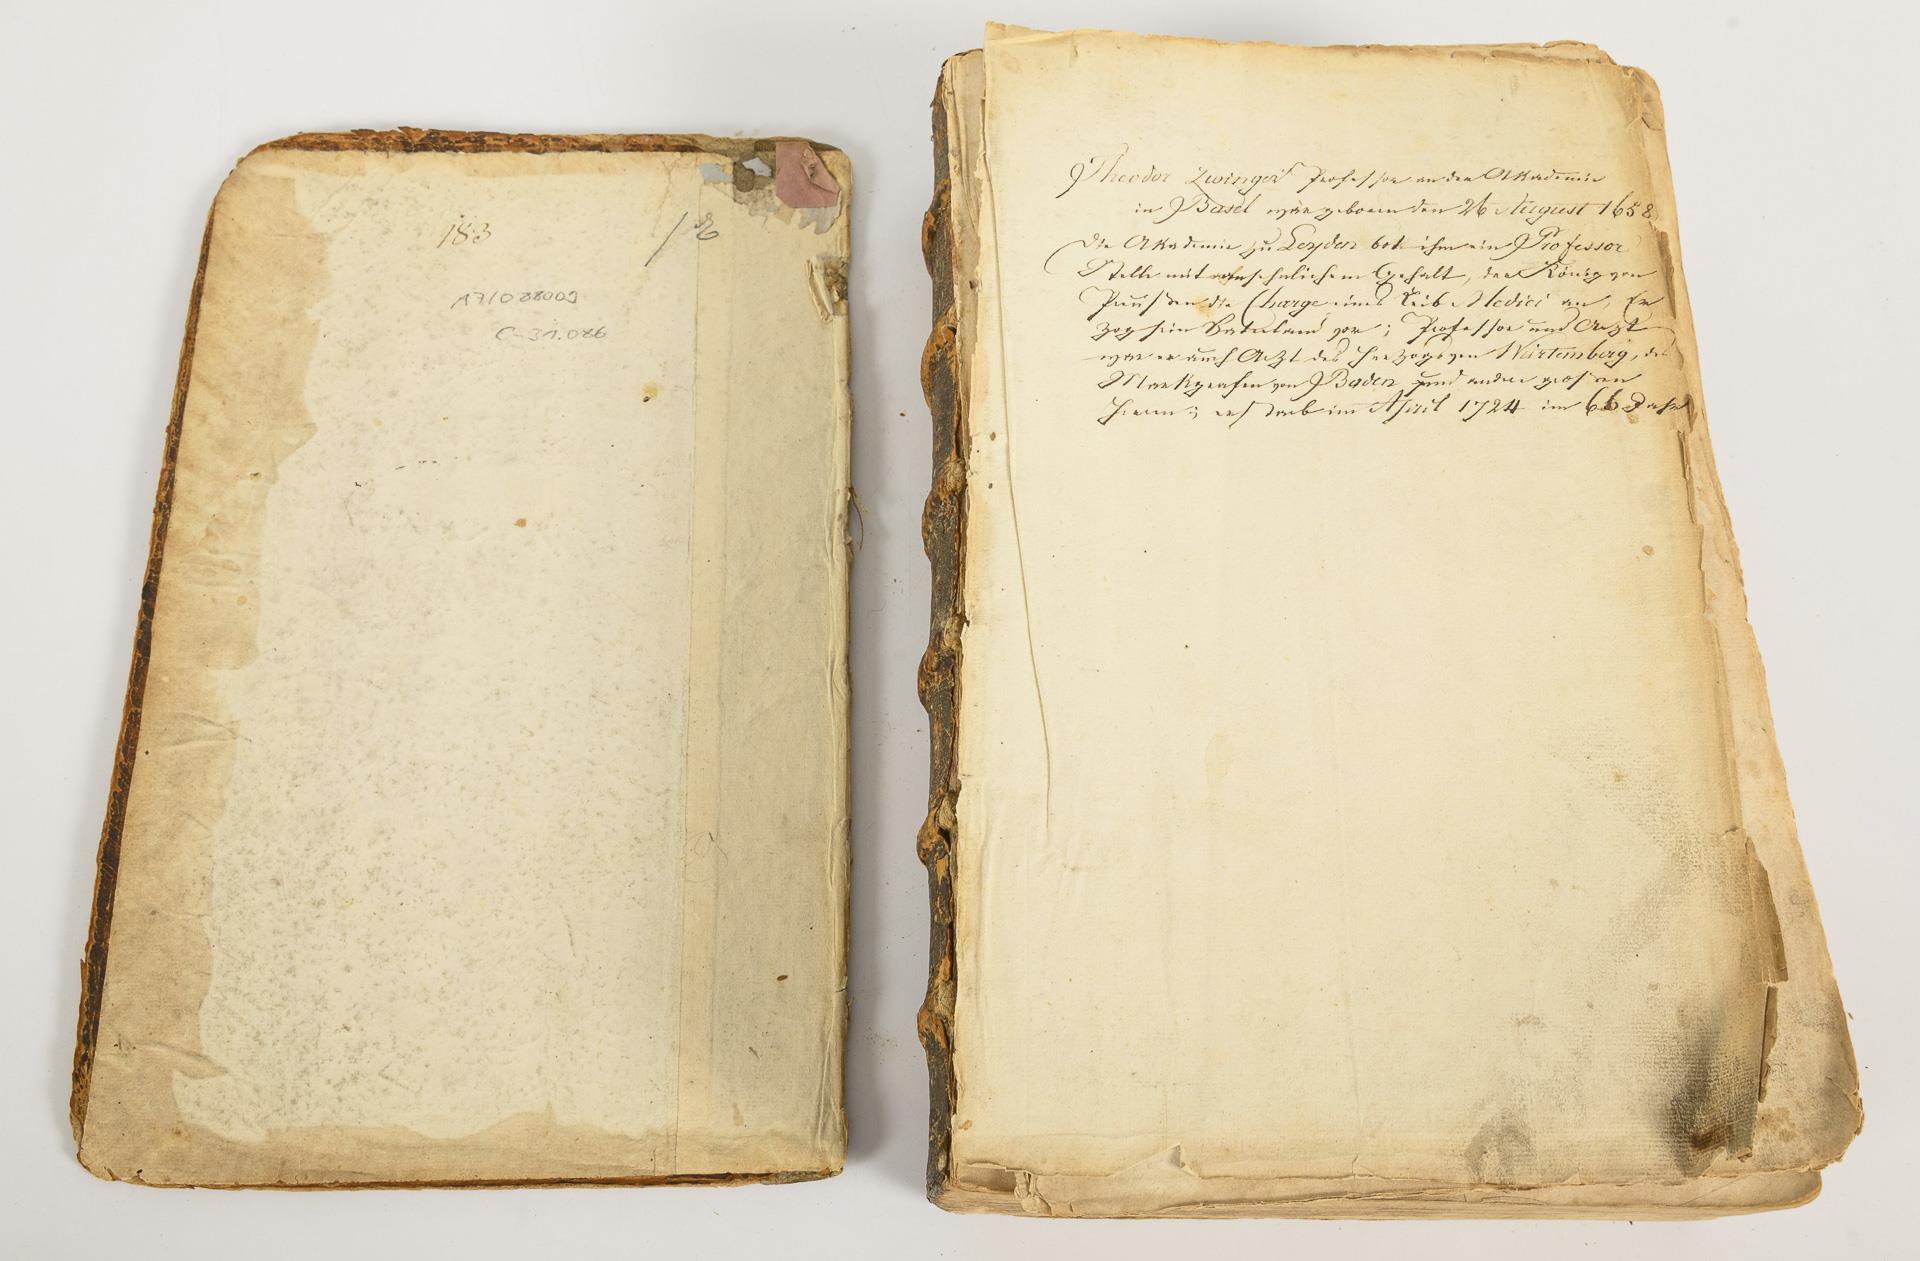 183
A7/028009
C-31.086
Theodor Zwinger Professor an der Akademie
in Basel war geboren den 26 August 1658
Die Akademie zu Leyden bot ihm ein Professor
Stelle mit ansehnlichem Gehalt, der König von
Preussen die Charge eines Leib Medici an, Er
zog sein Vaterland vor; Professor und Arzt
war er auch Arzt des Herzogs von Würtemberg, des
Markgrafen von Baden und andere grossen
Herren; er starb im April 1724 im 66 Jahr